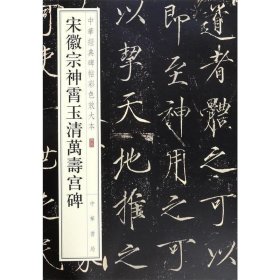 宋徽宗神霄玉清萬壽宫碑
中華經典碑帖彩色放大本
中華書局
者體之可
至神用之可
以挈天地推